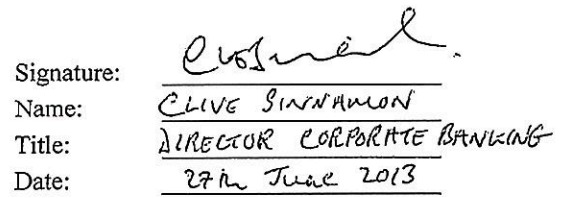 Signature:
Name: CLIVE SINNAMON
Title: DIRECTOR CORPORATE BANKING
Date: 27th June 2013